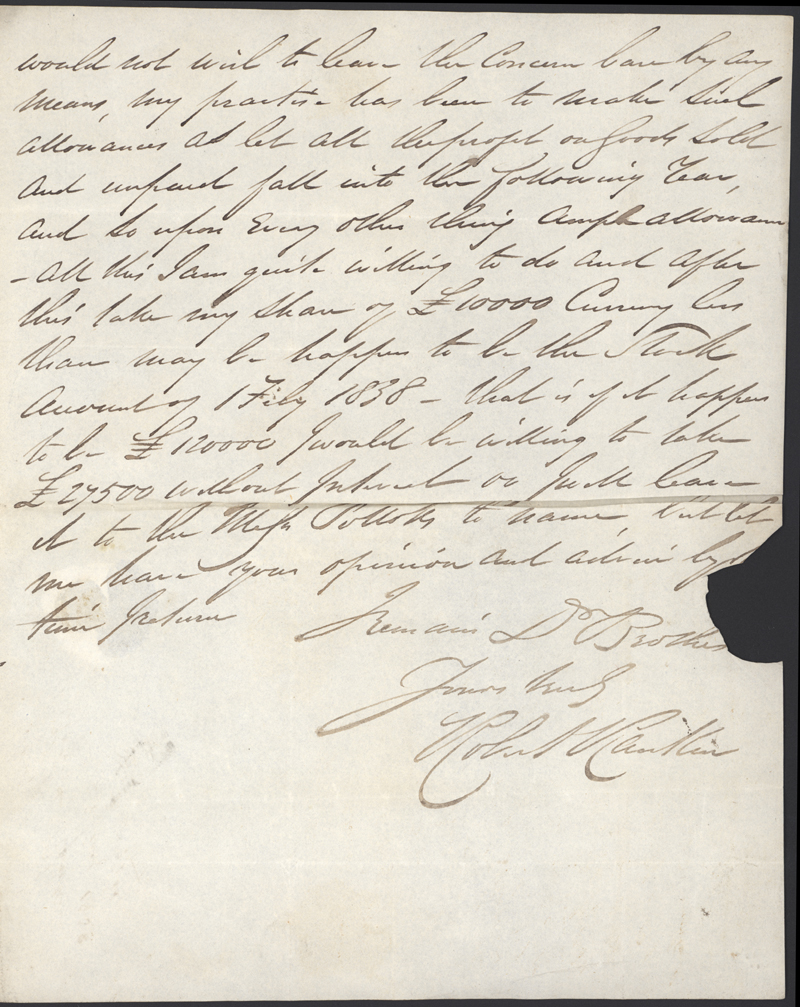 would not wish to leave the Concern bare by any
means, my practise has been to make such
allowances as let all the profit on goods sold
and unpaid fall into the following Year,
and so upon Every other thing ample allowance
- all this I am quite willing to do and after
this take my share of £10000 Currency less
than may be happen to be the Stock
Account of 1 Feby 1838 - that is if it happens
to be £120000 I would be willing to take
£27500 without Interest or I will leave
it to the Messrs Pollocks to name, but let
me have your opinion and advice by
their return
I remain Dr Brother
Yours truly
Robert Rankin